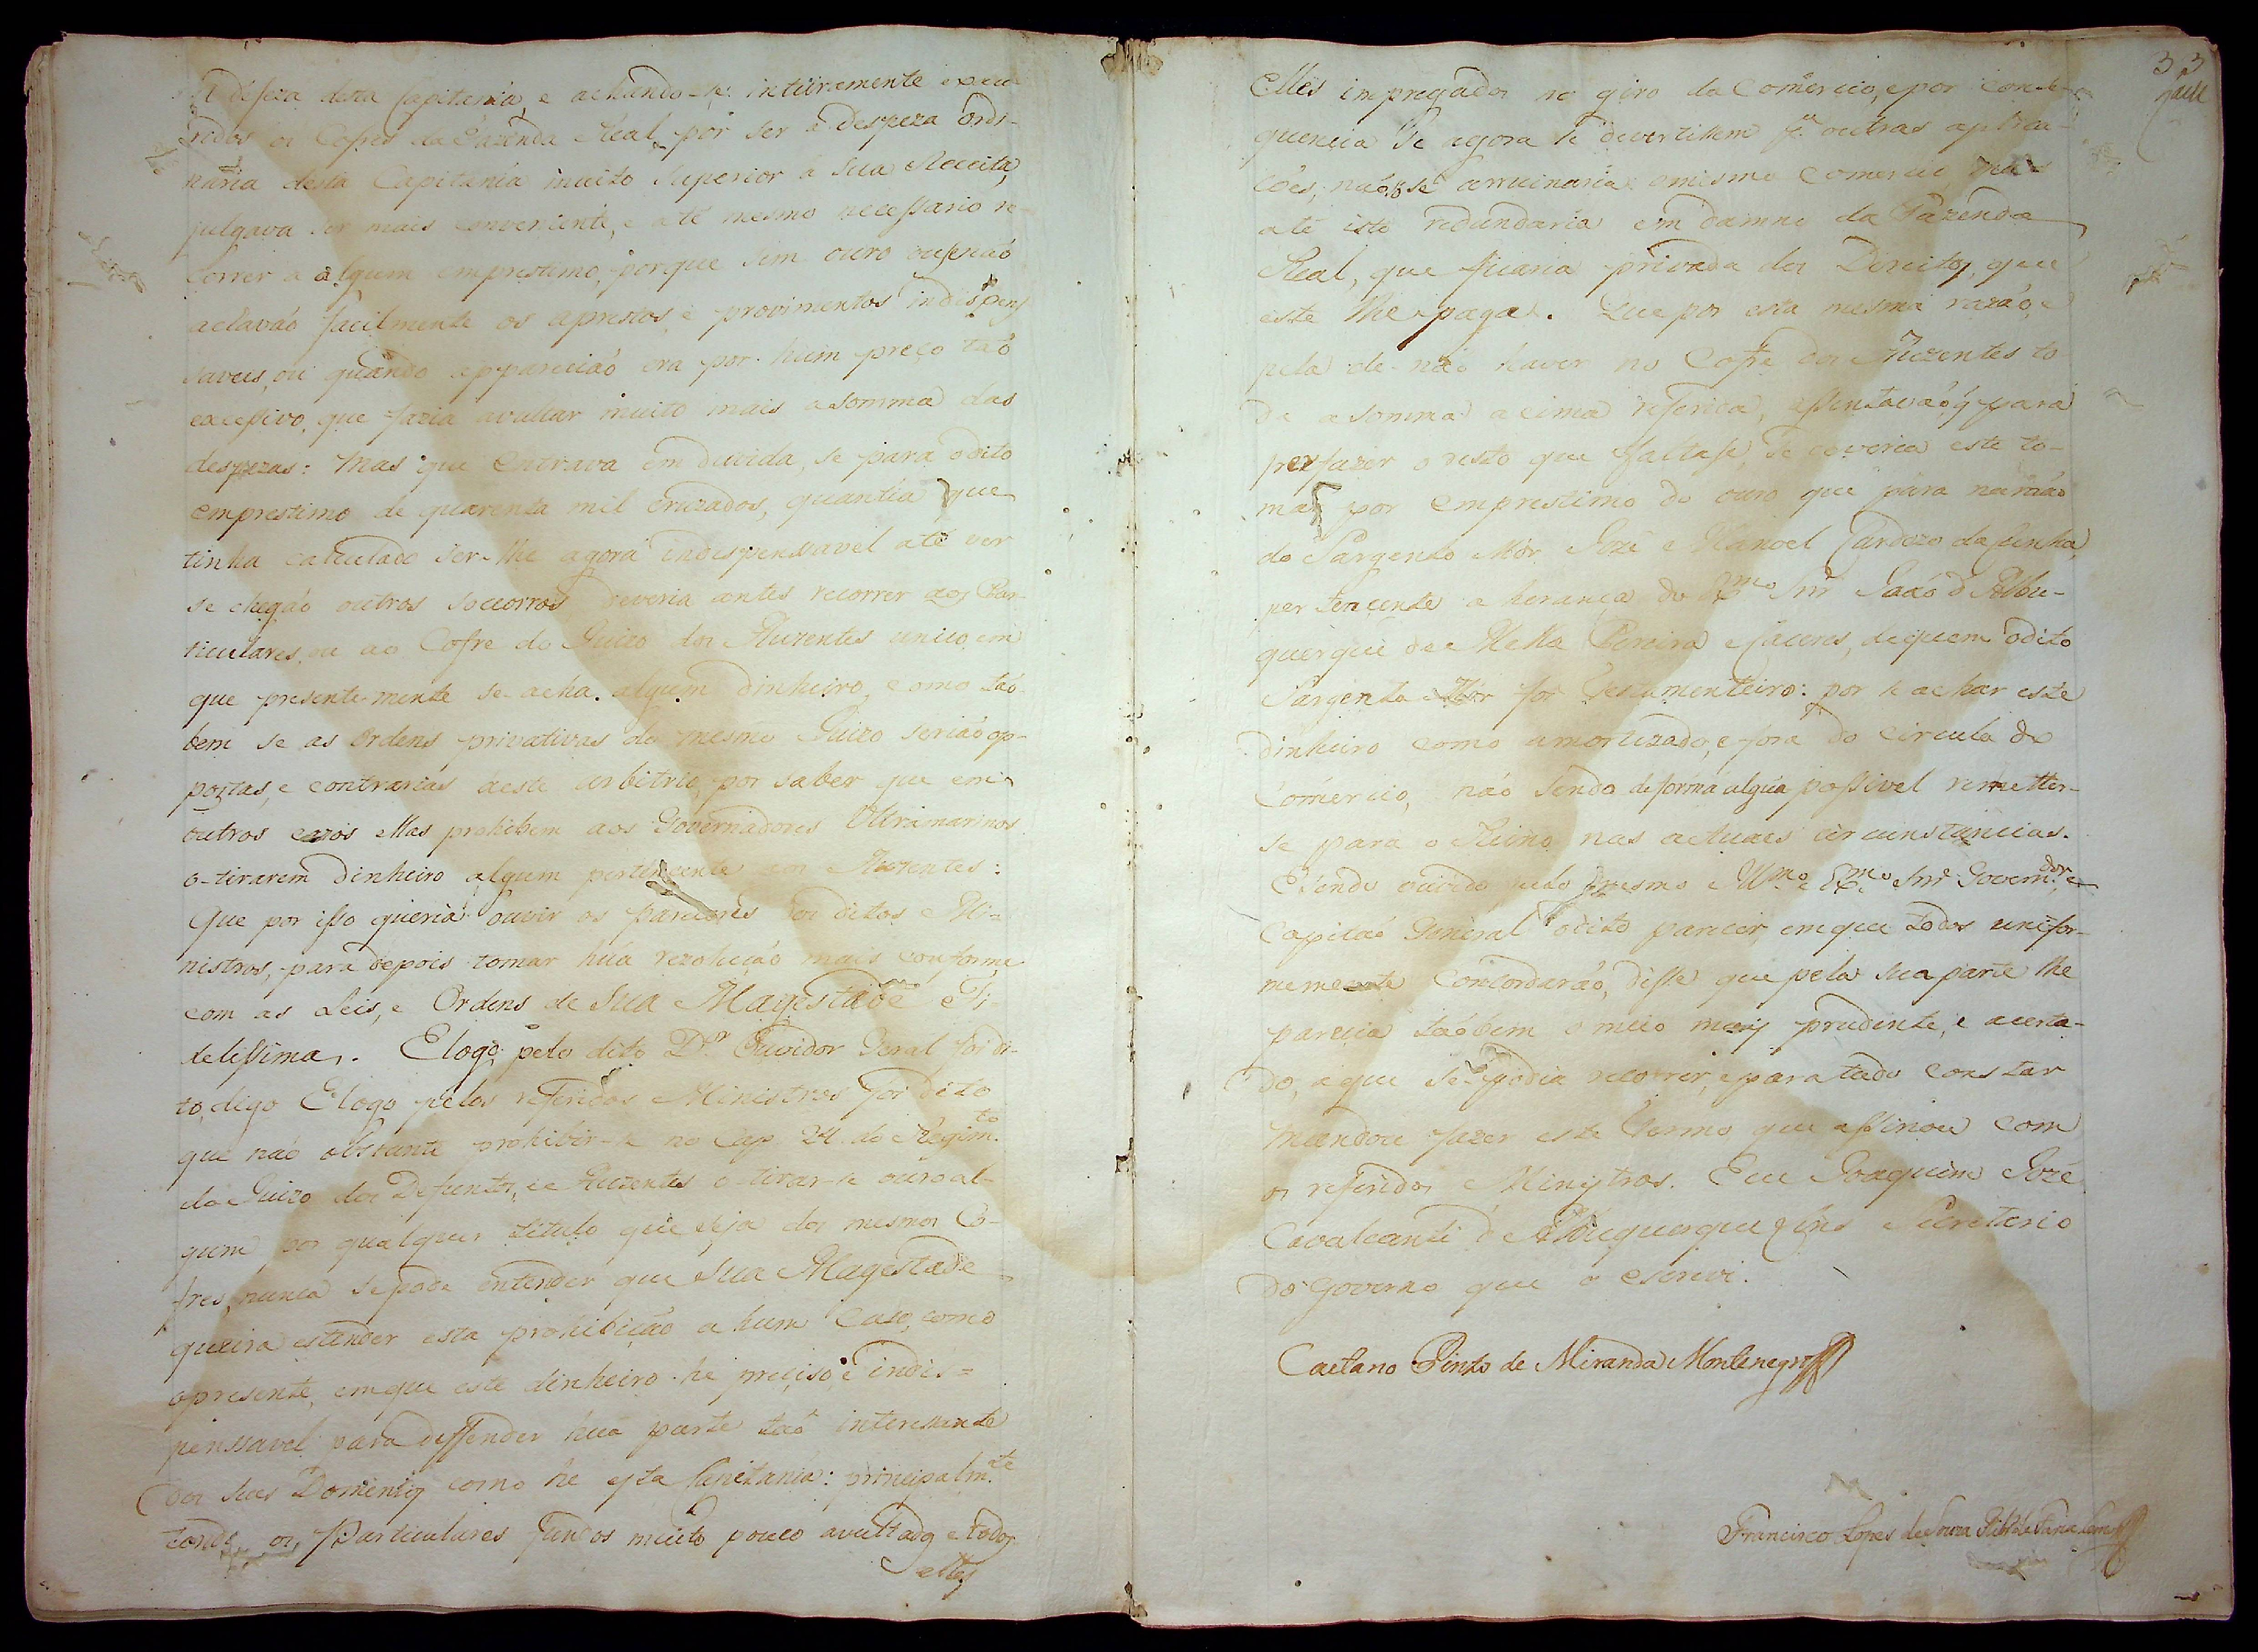 defeza desta Capitania, e achando-se inteiramente exau-
ridos os Cofres da Fazenda Real, por ser a despeza ordi-
naria desta Capitania muito superior á sua Receita,
julgava ser mais conveniente, e até mesmo necessario re-
correr a algum emprestimo, porque sem ouro ou se naó
aclavaó facilmente os aprestos, e provimentos indispen-
saveis, ou quando appareciaó era por hum preço taó
excessivo, que fazia avultar muito mais a somma das
despezas: Mas que entrava em duvida, se para o dito
emprestimo de quarenta mil cruzados, quantia que
tinha calculado ser-lhe agora indispensavel até ver
se chegaó outros soccorros deveria antes recorrer aos Par-
ticulares, ou ao Cofre do Juizo dos Auzentes unico, em
que presentemente se acha algum dinheiro, e como taó-
bem se as Ordens privativas do mesmo Juizo seriaó op-
postas, e contrarias a este arbitrio, por saber que em
outros cazos ellas prohibem aos Governadores Ultramarinos
o tirarem dinheiro algum pertencente aos Auzentes:
Que por isso queria ouvir os pareceres dos ditos Mi-
nistros, para depois tomar húa rezoluçaó mais conforme
com as Leis, e Ordens de Sua Magestade Fi-
delissima. E logo pelo dito D.r Ouvidor Geral foi di-
to, digo E logo pelos referidos Ministros foi dito
que naó obstante prohibir-se no Cap. 24. do Regim.to
do Juizo dos Defuntos, e Auzentes o tirar-se ouro al-
gum por qualquer titulo que seja dos mesmos Co-
fres, nunca se pode entender que Sua Magestade
queira estender esta prohibiçaó a hum Caso, como
o presente, em que este dinheiro he preciso, e indis=
penssavel para deffender húa parte taó interessante
dos seus Dominios como he esta Capitania: principalm.te
tendo os Particulares fundos muito pouco avultados e todos
elles
33
Elles impregados no giro do Comercio, e por conse-
quencia se agora se devertissem p.a outras aplica-
ções, naó só se arruinaria o mesmo Comercio, mas
até isto redundaria em damno da Fazenda
Real, que ficaria privada dos Direitos, que
este lhe paga. Que por esta mesma razaó, e
pela de naó haver no Cofre dos Auzentes to-
da a somma acima referida, assentavaó q para
perfazer o resto que faltase, se deveria este to-
mar por emprestimo do ouro que para na maó
do Sargento Mór Jozé Manoel Cardozo da Cunha,
pertencente a herança do Ex.mo Snr Joaó d'Albu-
querque de Mello Pereira e Caceres, de quem o dito
Sargento Mór foi Testamenteiro: por se achar este
dinheiro como amortizado, e fora do circulo do
Comercio, naó sendo de fórma algúa possivel remetter-
se para o Reino nas actuaes circunstancias.
E sendo ouvido pelo mesmo Ill.mo e Ex.mo Snr Govern.dor e
Capitaó General o dito parecer, em que todos unifor-
memente concordaraó, disse que pela sua parte lhe
parecia taóbem o meio mais prudente, e acerta-
do, a que se podia recorrer, e para tudo constar
mandou fazer este Termo que assinou com
os referidos Ministros. E eu Joaquim Jozé
Cavalcanti d'Albuquerque Lins Secretario
do Governo que o escrevi.
Caetano Pinto de Miranda Montenegro
Francisco Lopes de Souza Rib.o de Faria Lemos